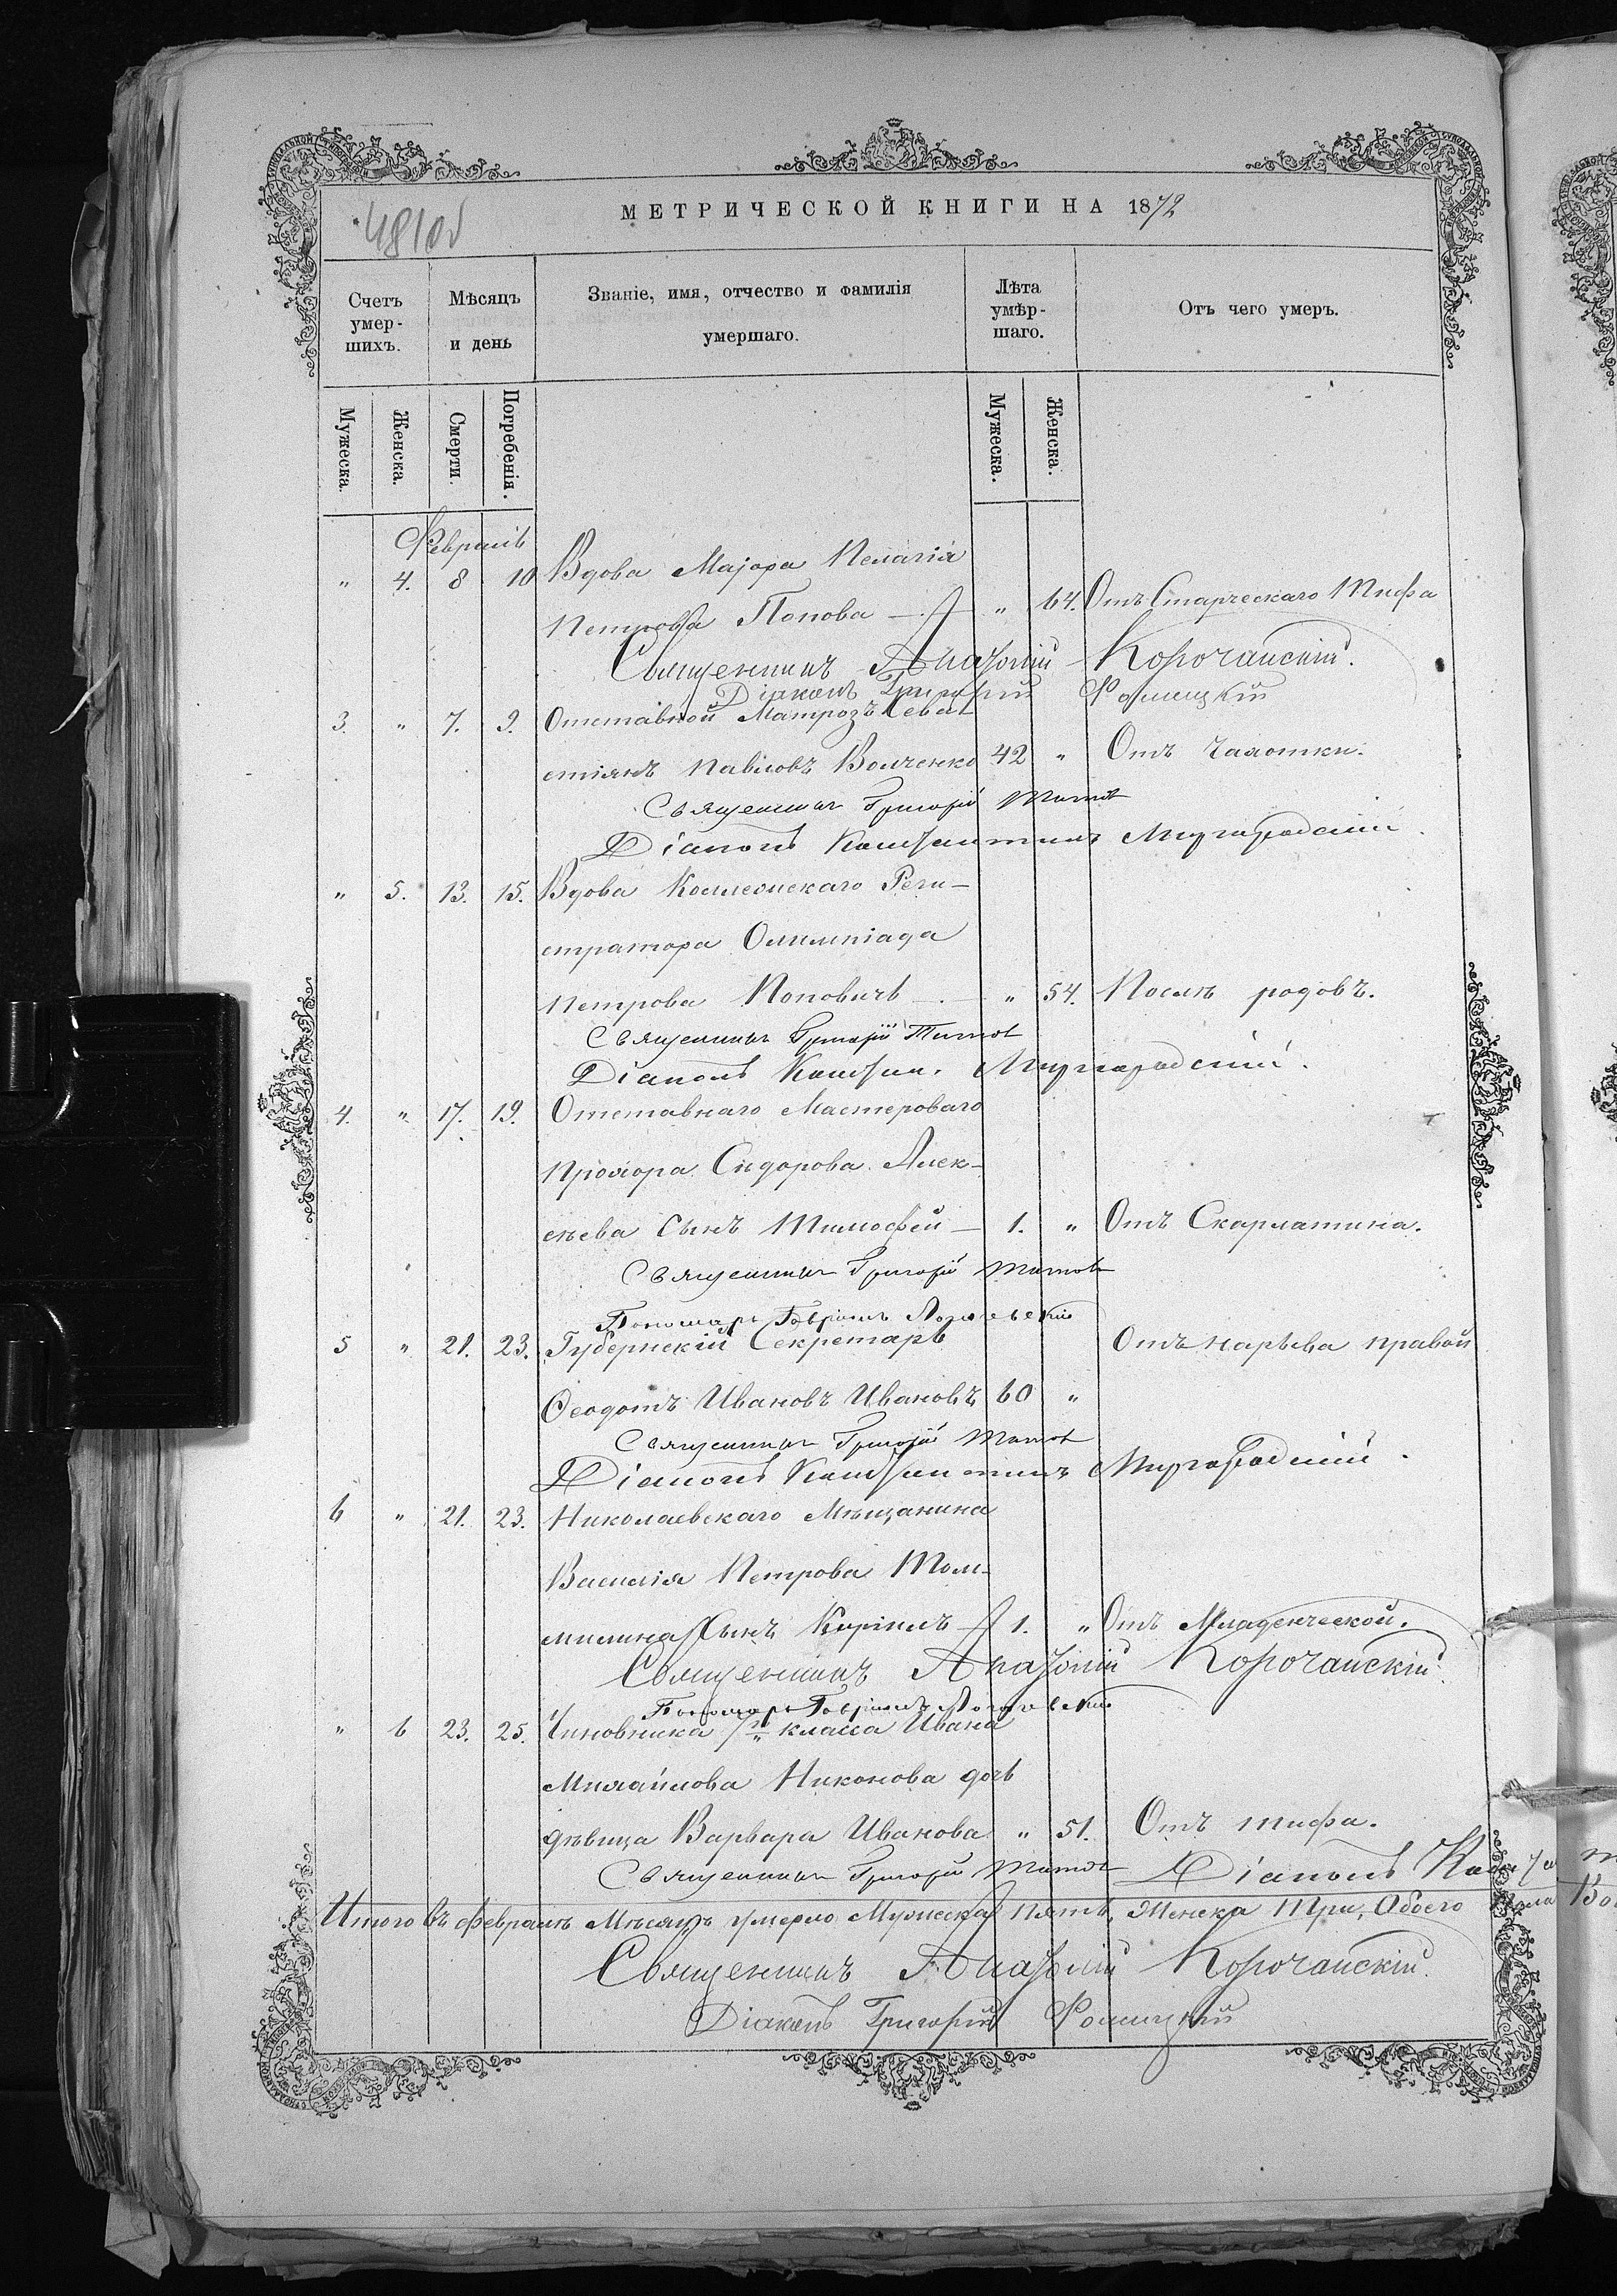 МЕТРИЧЕСКОЙ КНИГИ НА 1872
Счетъ умер-шихъ.
Мѣсяцъ и день
Званіе, имя, отчество и фамилія умершаго.
Лѣта умѣр-шаго.
Отъ чего умеръ.
Мужеска. Женска. Смерти. Погребенія. Мужеска. Женска.
Февраль
" 4. 8 10 Вдова Маіора Пелагія
Петрова Попова — " 64. Отъ Старческаго Тифа
Священникъ Анатолій Корочанскій.
Діаконъ Григорій
3. " 7. 9. Отставной Матрозъ Севас
стіянъ Павловъ Волченко 42 " Отъ Чахотки.
Священникъ Григорій Титов
Діаконъ Константинъ Миргородскій.
" 5. 13. 15. Вдова Коллежскаго Реги-
стратора Олимпіада
Петрова Поповичъ — " 54. Послѣ родовъ.
Священникъ Григорій Титов
Діаконъ Констан. Миргородскій.
4. " 17. 19. Отставнаго Мастероваго
Прохора Сидорова Алек-
сѣева Сынъ Тимофей — 1. " Отъ Скарлатина.
Священникъ Григорій Титов
Пономарь Гавріилъ
5 " 21. 23. Губернскій Секретарь Отъ нарыва правой
Ѳеодотъ Ивановъ Ивановъ 60 "
Священникъ Григорій Титов
Діаконъ Константинъ Миргородскій.
6 " 21. 23. Николаевскаго Мѣщанина
Василія Петрова Том-
милина Сынъ Кирилъ — 1. " Отъ Младенческой.
Священникъ Анатолій Корочанскій
Пономарь Гавріилъ
" 6 23. 25. Чиновника класса Ивана
Михайлова Никонова дочь
дѣвица Варвара Иванова " 51. Отъ тифа.
Священникъ Григорій Титов Діаконъ
Итого въ февралѣ Мѣсяцѣ умерло Мужеска Пять, Женска Три, Обоего Пола
Священникъ Анатолій Корочанскій.
Діаконъ Григорій